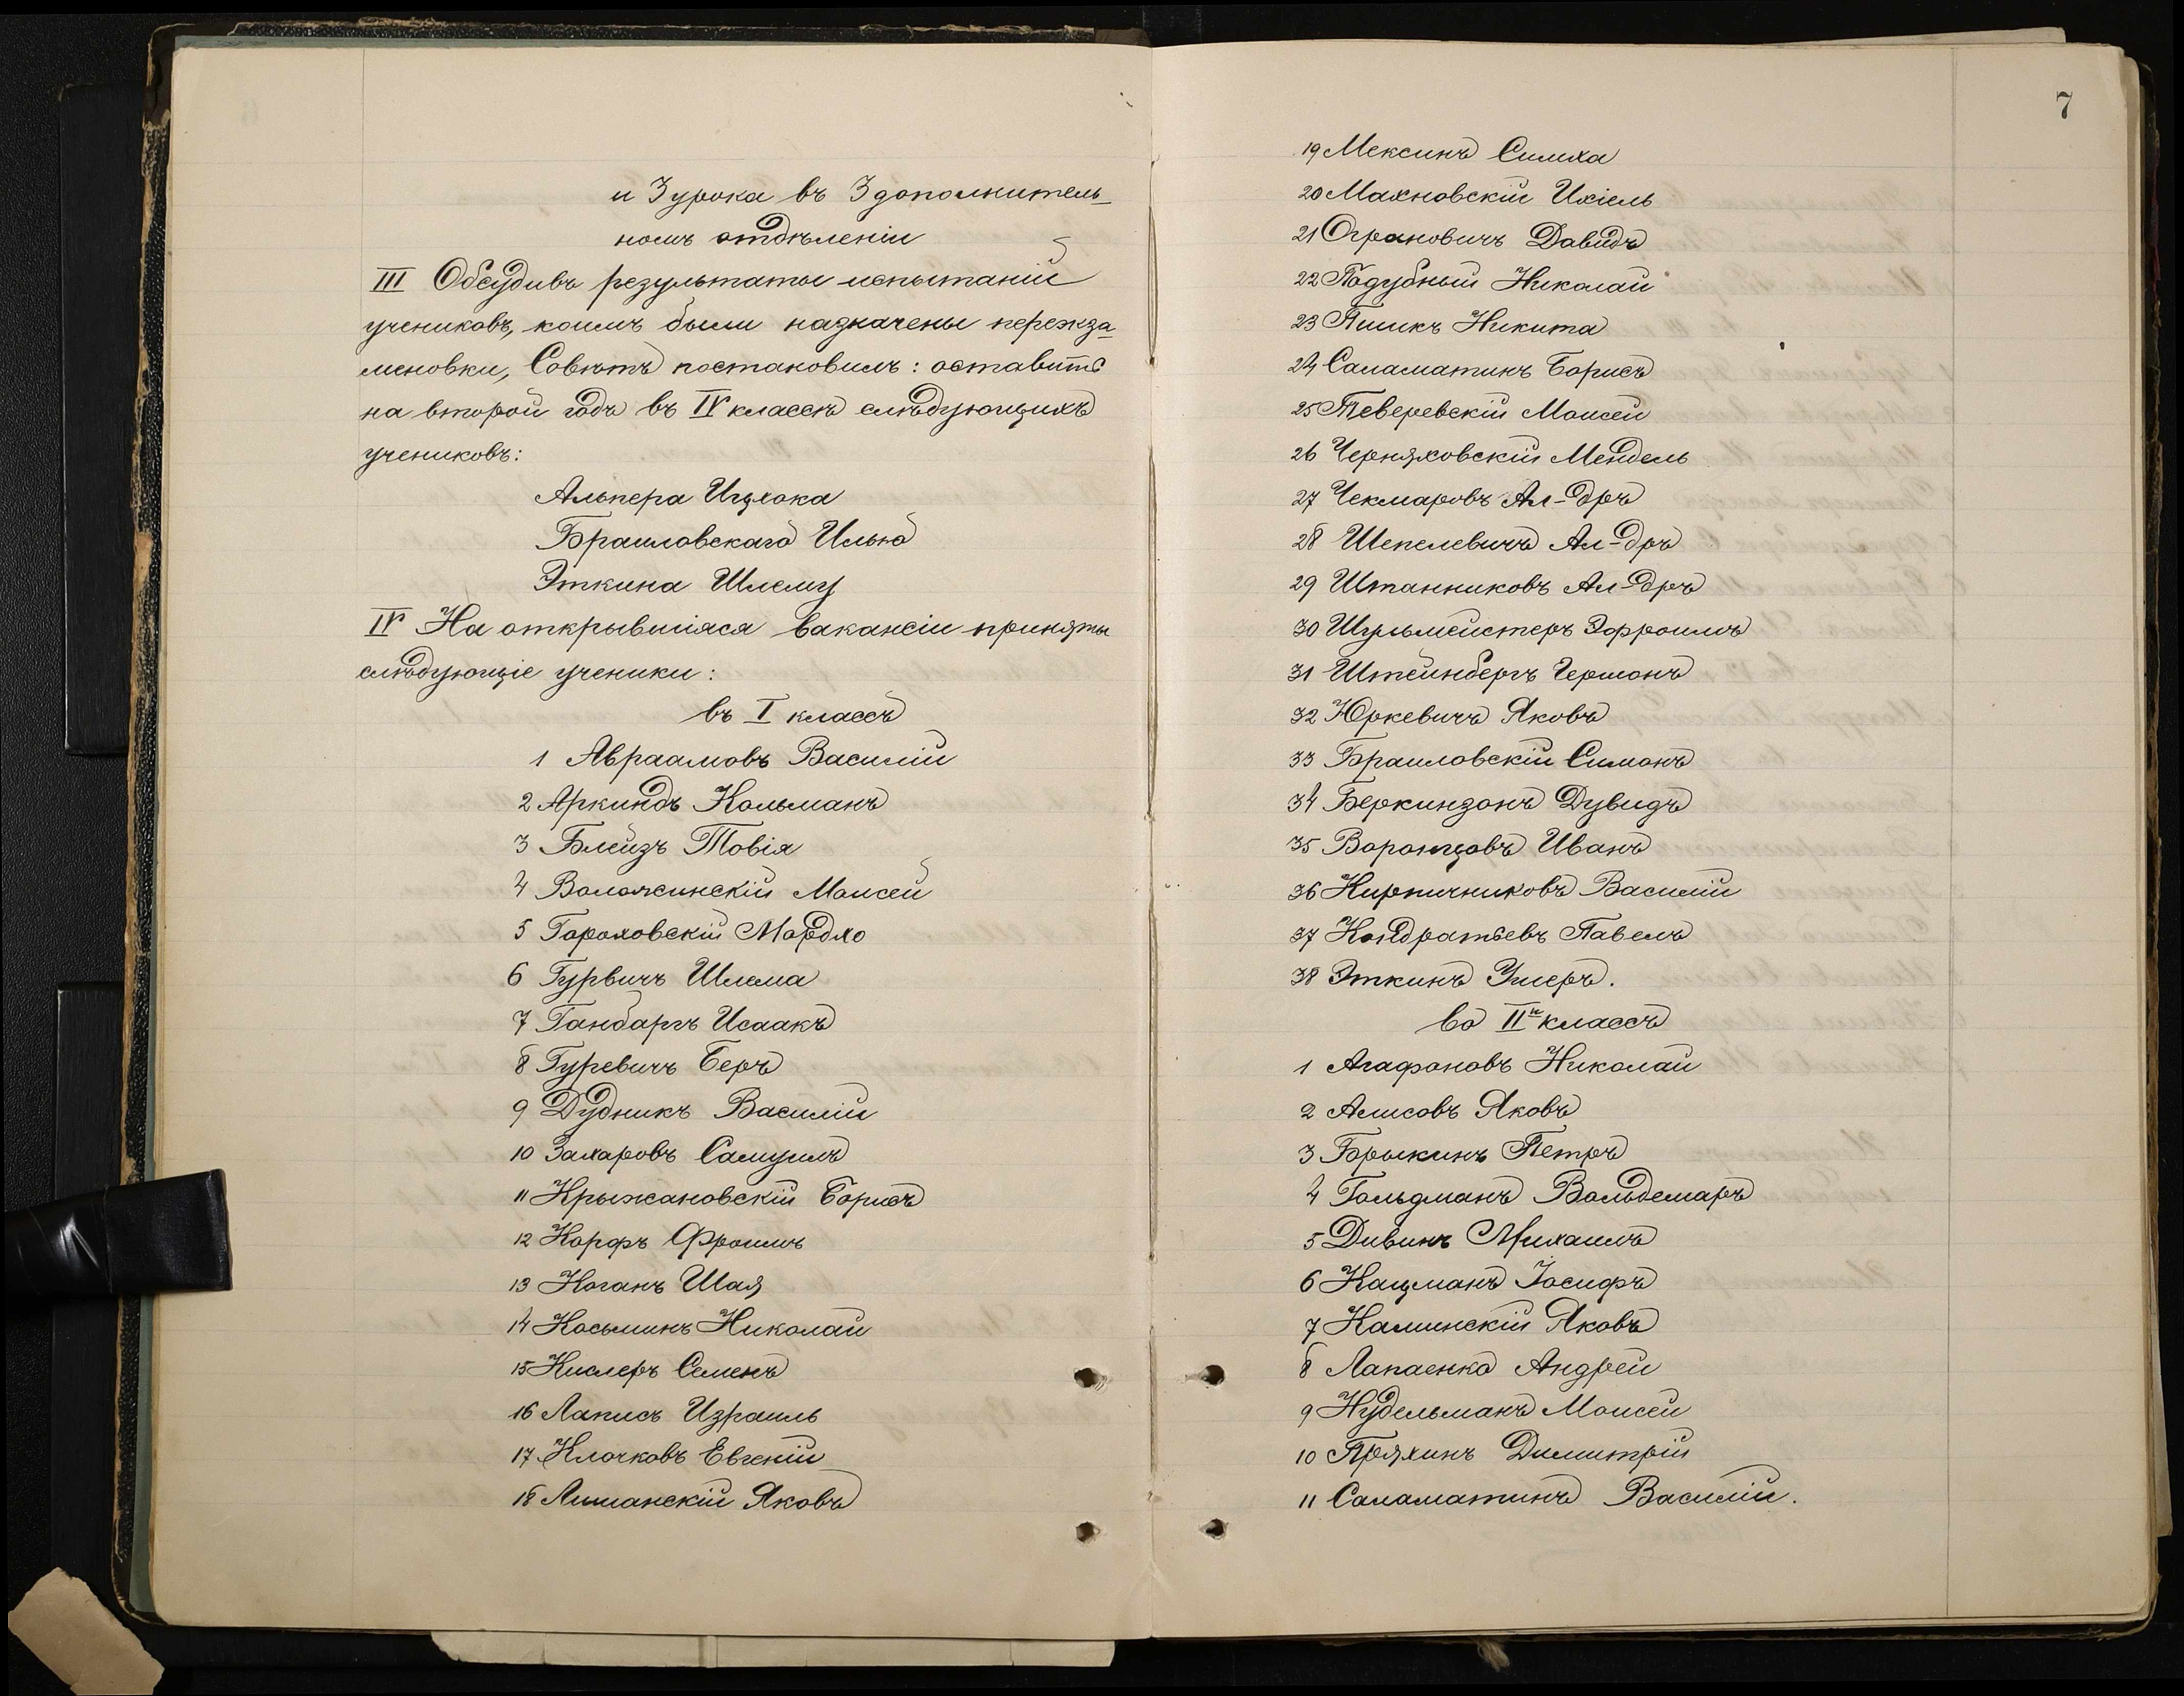 и 3 урока въ 3 дополнитель-
номъ отдѣленіи
III Обсудивъ результаты испытаній
учениковъ, коимъ были назначены переэкза-
меновки, Совѣтъ постановилъ: оставить
на второй годъ въ IV классѣ слѣдующихъ
учениковъ:
Альпера Ицхока
Браиловскаго Илью
Эткина Шлему
IV На открывшіяся вакансіи приняты
слѣдующіе ученики:
въ I классъ
1 Авраамовъ Василій
2 Аркиндъ Кальманъ
3 Блейзъ Товія
4 Воложинскій Моисей
5 Гороховскій Мордхо
6 Гурвичъ Шлема
7 Ганбаргъ Исаакъ
8 Гуревичъ Беръ
9 Дудникъ Василій
10 Захаровъ Самуилъ
11 Крыжановскій Борисъ
12 Корфъ Фроимъ
13 Коганъ Шая
14 Косьминъ Николай
15 Кислеръ Семенъ
16 Лаписъ Израиль
17 Клочковъ Евгеній
18 Лиманскій Яковъ
7
19 Мексинъ Симха
20 Махновскій Ихіель
21 Ограновичъ Давидъ
22 Подубный Николай
23 Пшикъ Никита
24 Саламатинъ Борисъ
25 Теверевскій Моисей
26 Черняховскій Мендель
27 Чекмаровъ Ал-дръ
28 Шепелевичъ Ал-дръ
29 Штанниковъ Ал-дръ
30 Шульмейстеръ Эфроимъ
31 Штейнбергъ Гершонъ
32 Юркевичъ Яковъ
33 Браиловскій Симонъ
34 Беркинзонъ Дувидъ
35 Воронцовъ Иванъ
36 Кирпичниковъ Василій
37 Кондратьевъ Павелъ
38 Эткинъ Ушеръ.
во IIй классъ
1 Агафоновъ Николай
2 Алисовъ Яковъ
3 Брыкинъ Петръ
4 Гольдманъ Вольдемаръ
5 Дивинъ Михаилъ
6 Кацманъ Іосифъ
7 Каминскій Яковъ
8 Лапаенко Андрей
9 Нудельманъ Моисей
10 Пряхинъ Димитрій
11 Саламатинъ Василій.